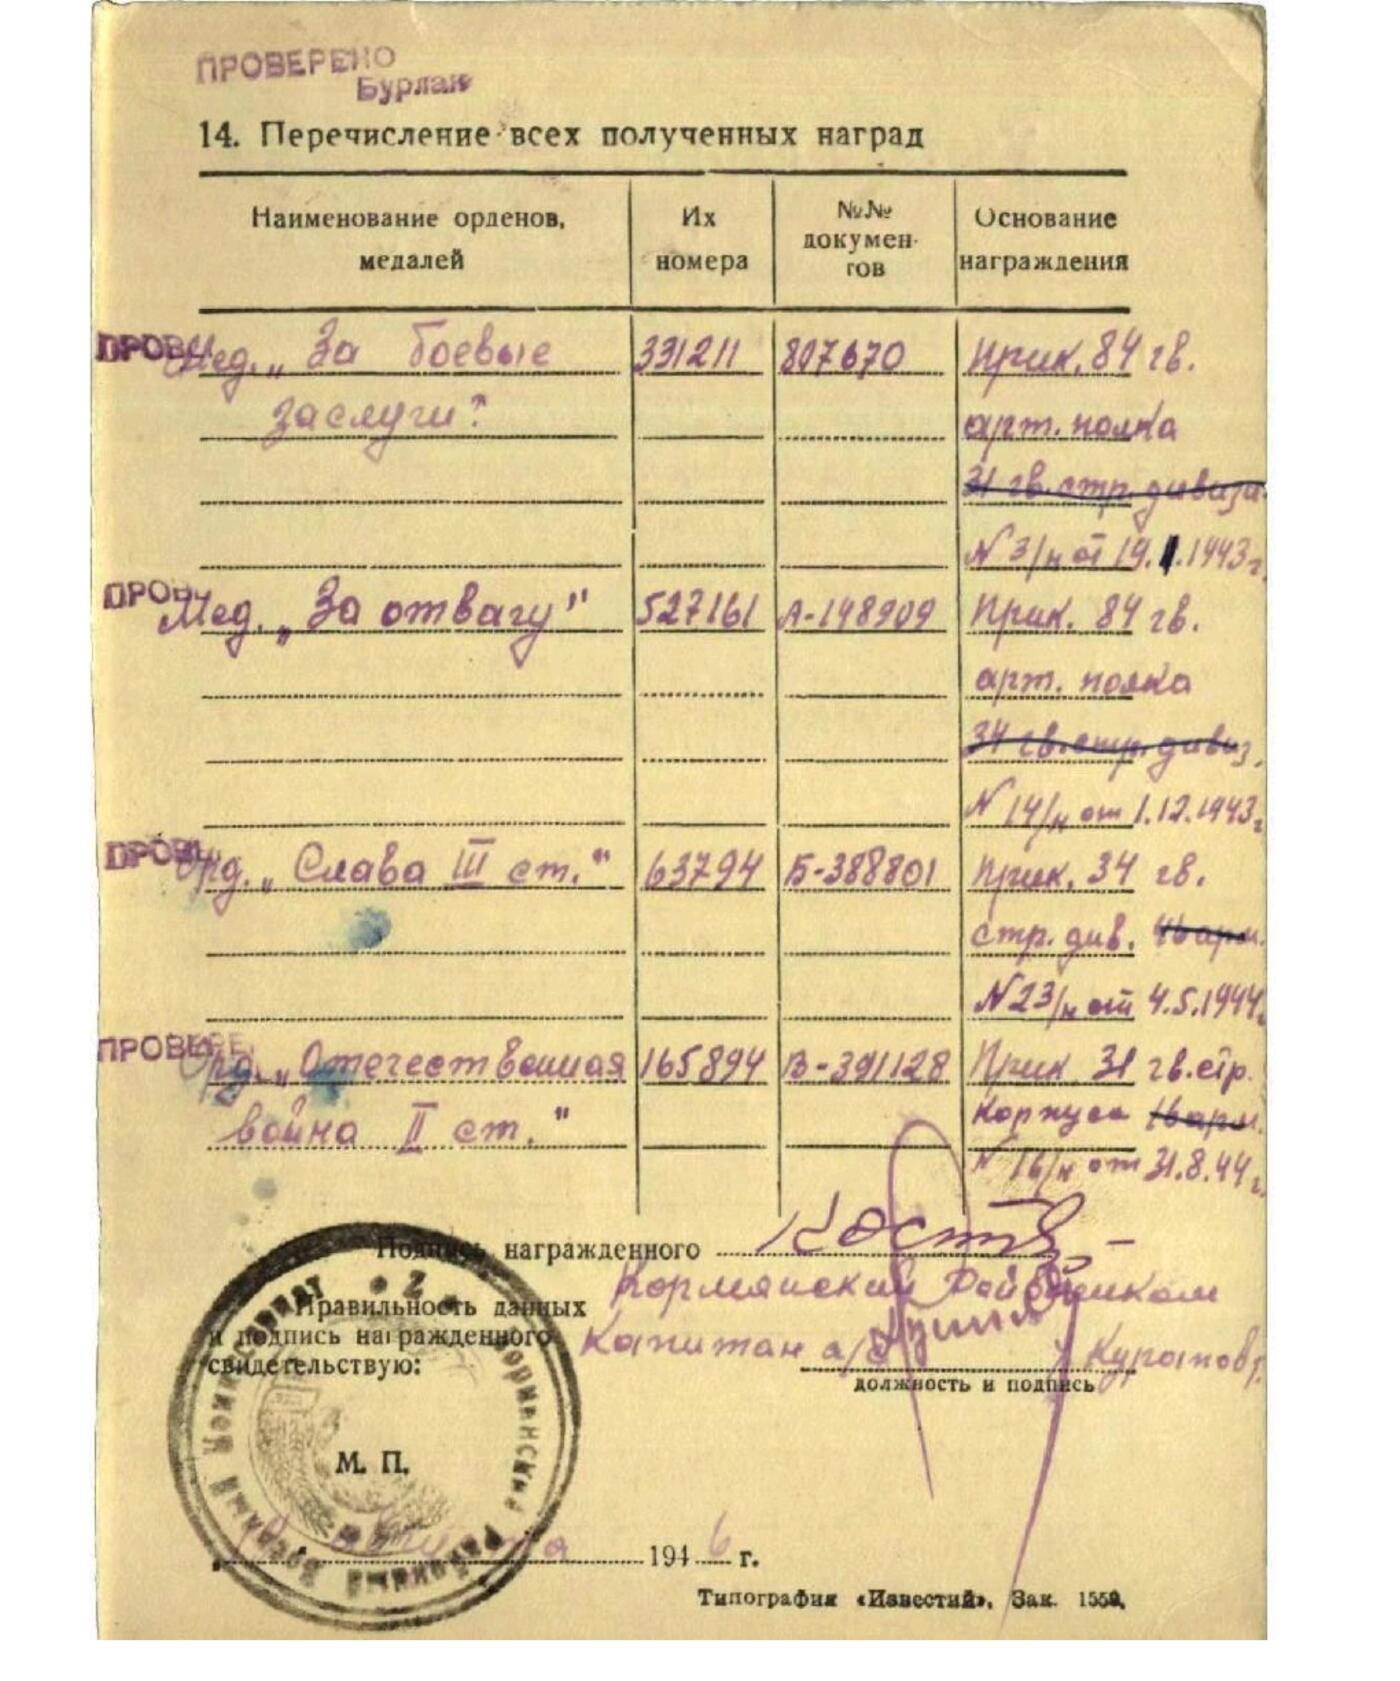 ПРОВЕРЕНО
Бурлак
14. Перечисление всех полученных наград
Наименование орденов, медалей
Их номера
№№ докумен-тов
Основание награждения
ПРОВЕ
Мед. „За боевые 331211 807670 Прик. 84 гв.
заслуги" арт. полка
31 гв. стр. дивизи
N 3/н от 19. .1943г.
ПРОВ
Мед. „За отвагу" 527161 А-198909 Прик. 84 гв.
арт. полка
34 гв. стр. дивиз.
N 14/н от 1.12.1943г
ПРОВ
Орд. „Слава III ст." 63794 Б-388801 Прик. 34 гв.
стр. див. 4в арм.
N 23/н от 4.5.1944г.
ПРОВЕРЕ
Орд. „Отечественная 165894 В-391128 Прик 31 гв. стр.
война II ст." корпуса арм.
N 16/н от 31.8.44 г.
Подпись награжденного
Кормянский Райвоенком
Правильность данных
и подпись награжденного
свидетельствую:
Капитан а/с
должность и подпись
М. П.
августа 1946 г.
Типография «Известий». Зак. 1559.